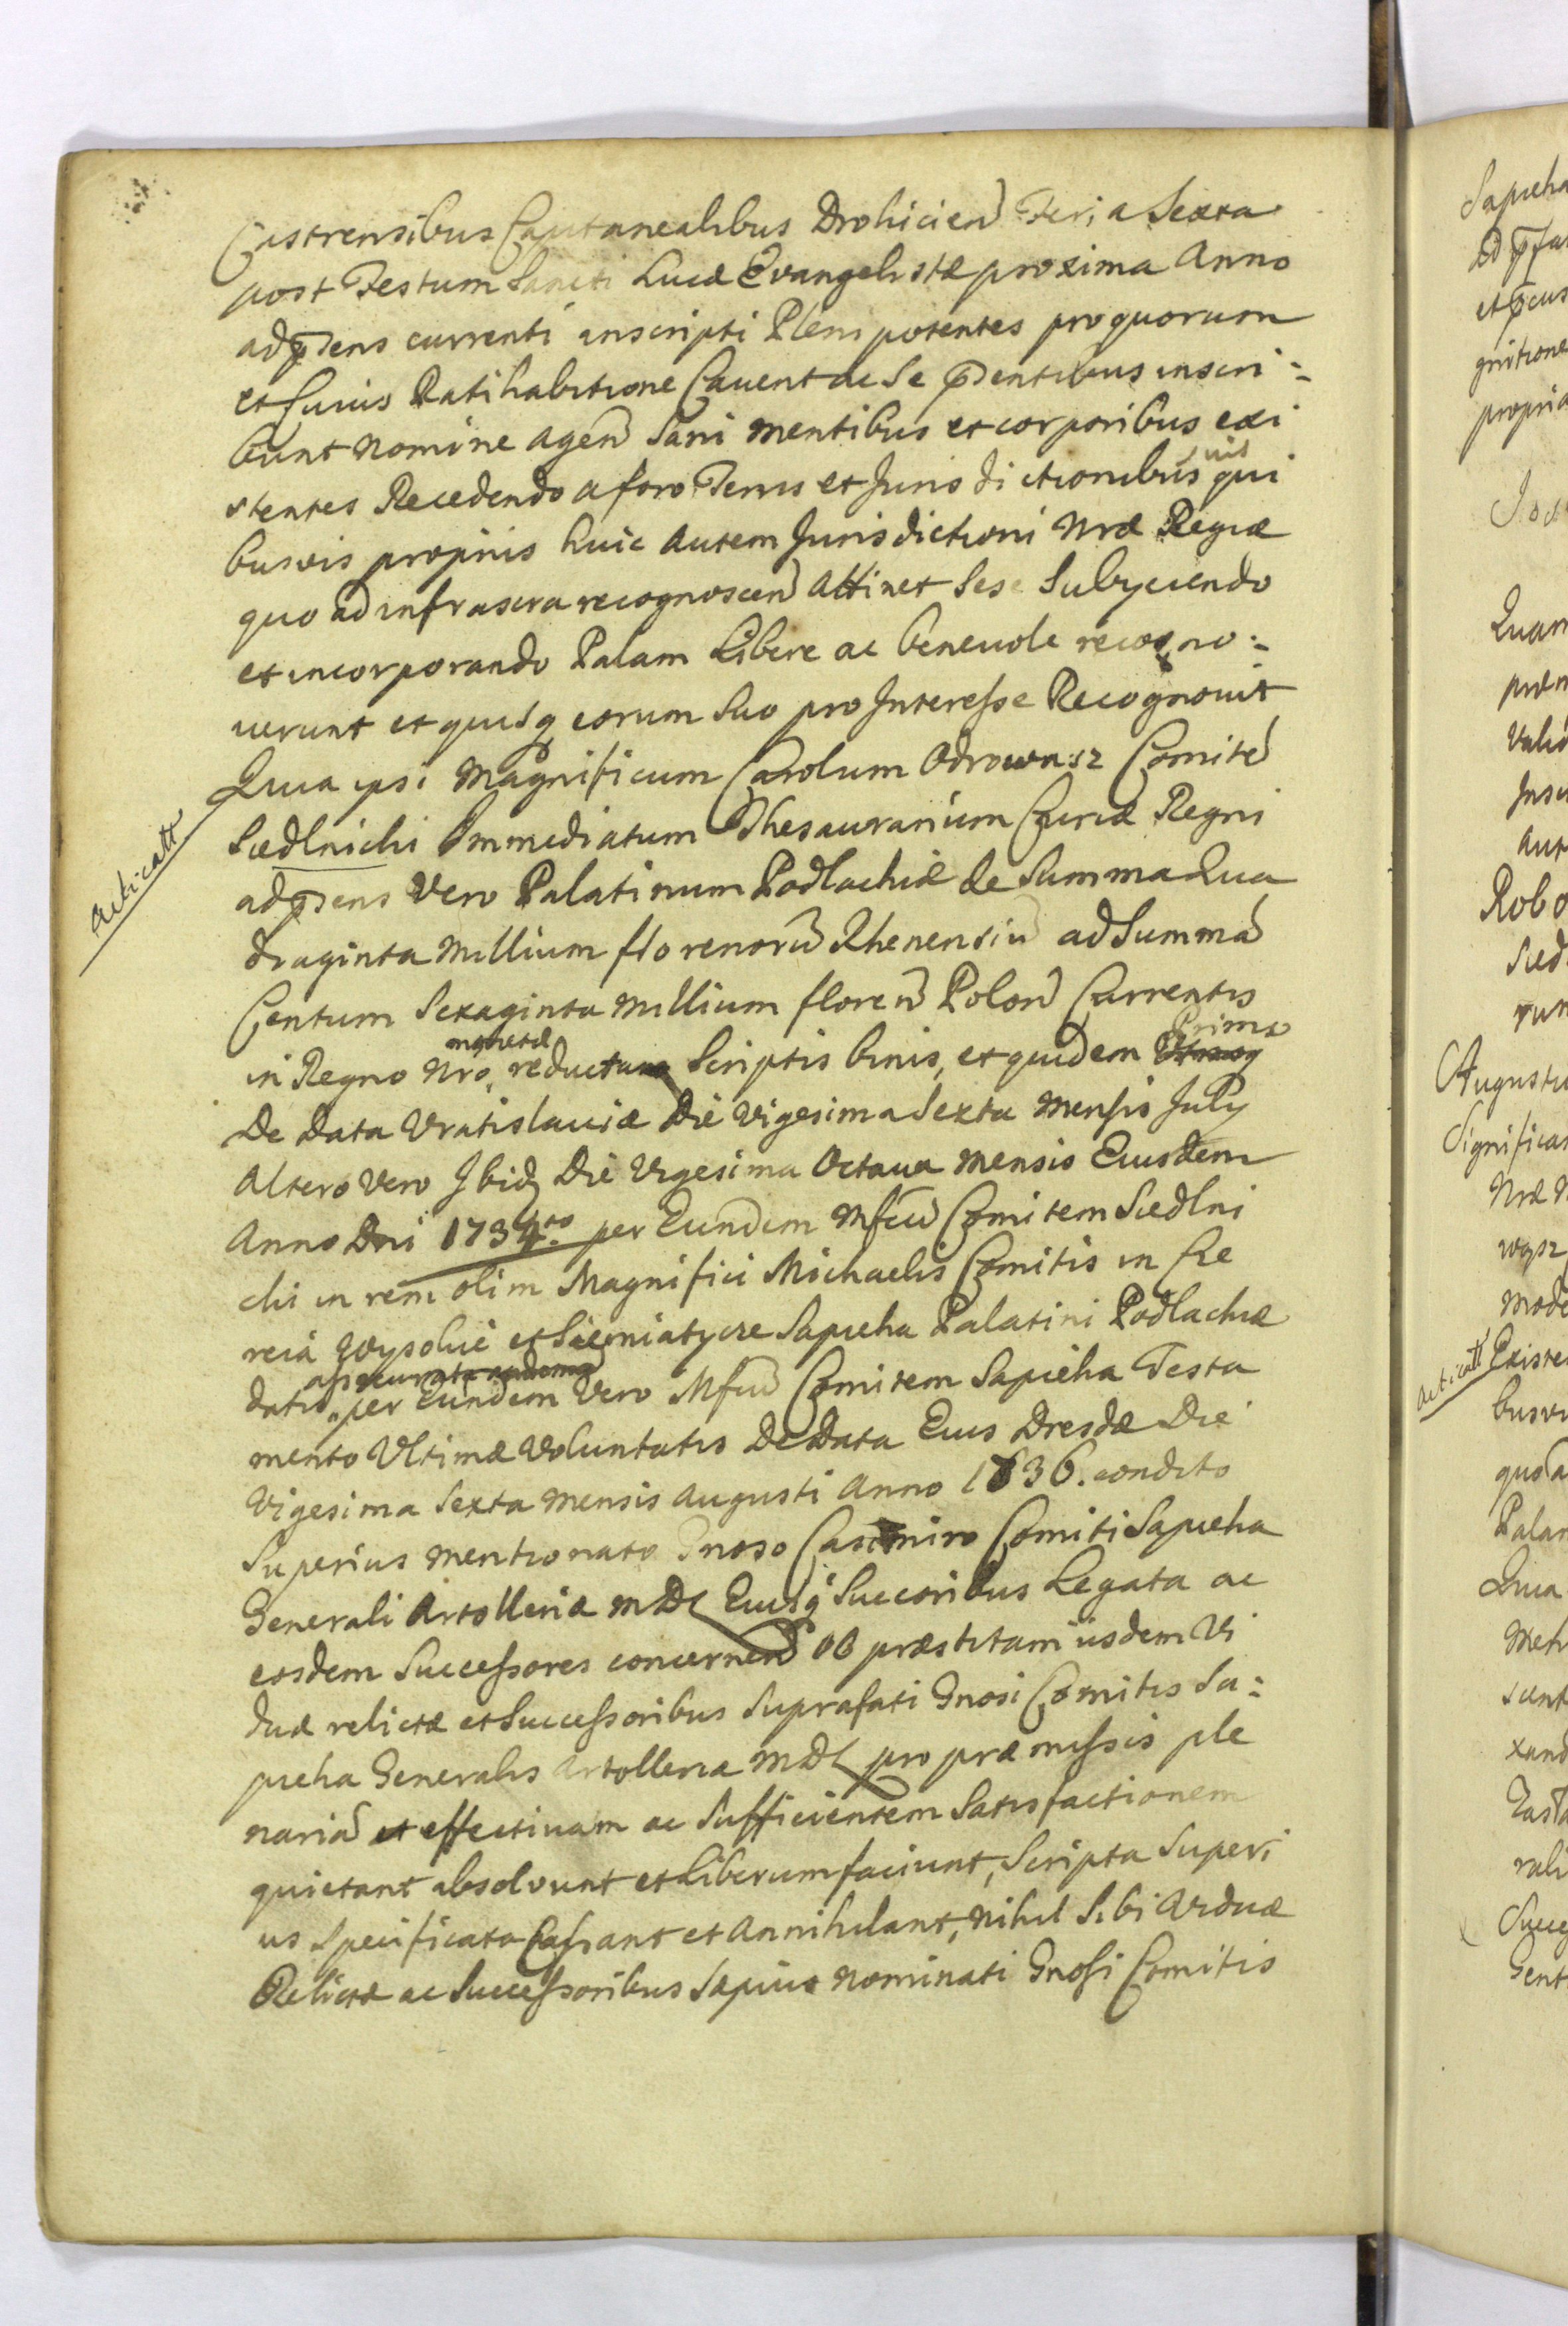 Castrensibus Capitanealibus Drohicien Feria Sexta
post Festum Sancti Lucæ Evangelistæ proxima Anno
adpsens currenti inscripti Plenipotentes pro quorum
et huius Ratihabitione Cavent ac Se psentibus inscri:
bunt nomine agen Sani mentibus et corporibus exi
stentes Recedendo a foro Terris et Juris dictionibus suis qui
busvis proprijs huic autem Jurisdictioni Nræ Regiæ
quo ad infrascra recognoscen Attinet Sese Subijciendo
et incorporando Palam Libere ac benevole recogno:
verunt et quisq eorum Suo pro Interesse Recognovit
Quia ipsi Magnificum Carolum Odrowąsz Comite
Siedlnicki Immediatum Thesaurarium Curiæ Regni
adpsens Vero Palatinum Podlachiæ de Summa Qua
draginta Millium florenoru Rhenensiu ad Summa
Centum Sexaginta Millium floren Polon Currentis
in Regno Nro monetæ reducta Scriptis binis, et quidem Primo
De Data Vratislaviæ Die Vigesima Sexta Mensis July
Altero Vero Ibid Die Vigesima Octava Mensis Eiusdem
Anno Dni 1734to per Eundem Mfcu Comitem Siedlni
cki in rem olim Magnifici Michaelis Comitis in Cze
reia Wysokie et Siemiatycze Sapieha Palatini Podlachiæ
datis per Eundem Vero Mfcu Comitem Sapieha Testa
mento Ultimæ Voluntatis De Data Eius Dresdæ Die
Vigesima Sexta Mensis Augusti Anno 1736. condito
Superius mentionato Gnoso Casimiro Comiti Sapieha
Generali Artolleriæ MDL Eiusq Succoribus Legata ac
eosdem Successores concernen Ob præstitam iisdem Vi
duæ relictæ et Successoribus Suprafati Gnosi Comitis Sa:
pieha Generalis Artolleriæ MDL pro præmissis ple
naria et effectivam ac Sufficientem Satisfactionem
quietant absolvunt et Liberum faciunt, Scripta Superi
us Specificata Cassant et Annihilant, nihil Sibi Viduæ
Relictæ ac Successoribus Sæpius nominati Gnosi Comitis
Acticatt
Sapieha
propria
Quam
Robo
Augustu
Significat
Acticatt
Existe
busvi
Palam
Quia